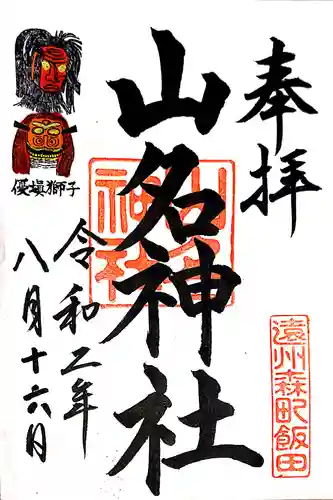 奉拝
遠州森町飯田
山名神社
山名神社
優塡獅子
令和二年
八月十六日